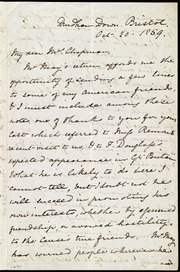 Durdham Down. Bristol
Oct. 20. 1859.
My dear Mrs. Chapman,
Mr. May's return affords me the
opportunity of sending a few lines
to some of my American friends,
& I must include among these
notes one of thanks to you for your
last which referred to Miss Remond's
recent visit to us, & to F. Douglass's
expected appearance in Gt. Britain.
What he is likely to do here I
cannot tell, but I doubt not he
will succeed in promoting his
own interests, whether by assumed
friendship, or avowed hostility
to the cause & true friends. Mr. May
has warned people wherever he